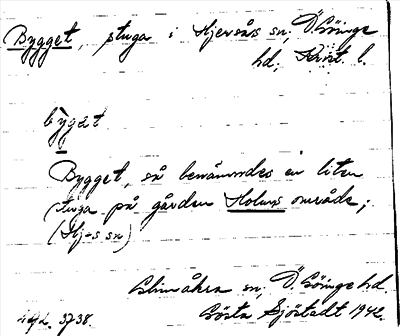 Bygget, stuga i Hjersås sn, Ö. Göinge
hd, Krist. l.
bỳgət
Bygget, så benämndes en liten
stuga på gården Holms område;
(Hj-s sn)
Glimåkra sn, Ö. Göinge hd.
Gösta Sjöstedt 1942.
3738.